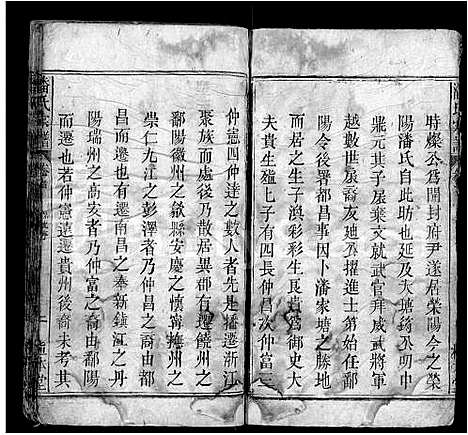 時燦公爲開封府尹遂居榮陽今之榮
陽潘氏自此昉也延及大宋錡公明中
鼎元其子扆棄文就武官拜威武將軍
越數世扆裔友廸公擢進士第始任鄱
陽令後署都昌事因卜潘家塘之勝地
而居之生子滇彩彩生艮貴艮貴以武
夫貴生殖上子有四長仲昌次仲富三
仲憲四仲達之數人者先是播遷浙江
聚族於斯後乃散居異郡有遷饒州之
鄱陽徽州之歙縣安慶之懷寧掩柳之
崇仁九江之彭澤者乃仲昌之裔由都
昌而遷也有遷南昌之奉新鎮江之丹
陽瑞州之高安者乃仲富之裔由鄱陽
而遷也若仲憲遠遷貴州後裔未考其
潘氏宗譜